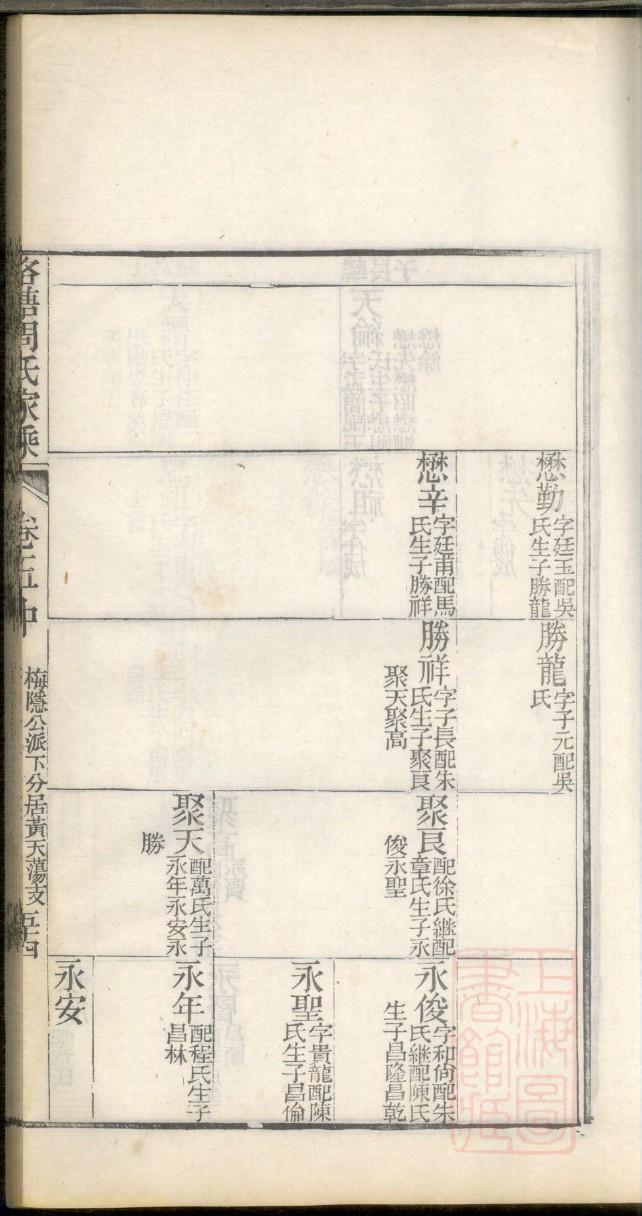 懋勤
字廷玉配吳
氏生子勝龍
懋辛
字廷甫配馬
氏生子勝祥
勝龍
字子元配吳
氏
勝祥
字子長配朱
氏生子聚良
聚天聚高
聚良
配徐氏継配
章氏生子永
俊永聖
聚天
配萬氏生子
永年永安永
勝
永俊
字和尙配朱
氏継配陳氏
生子昌隆昌乾
永聖
字貴龍配陳
氏生子昌倫
永年
配程氏生子
昌林
永安
周氏家乘
卷五中
梅隱公派下分居黃天蕩支
五十四
上海圖書館藏